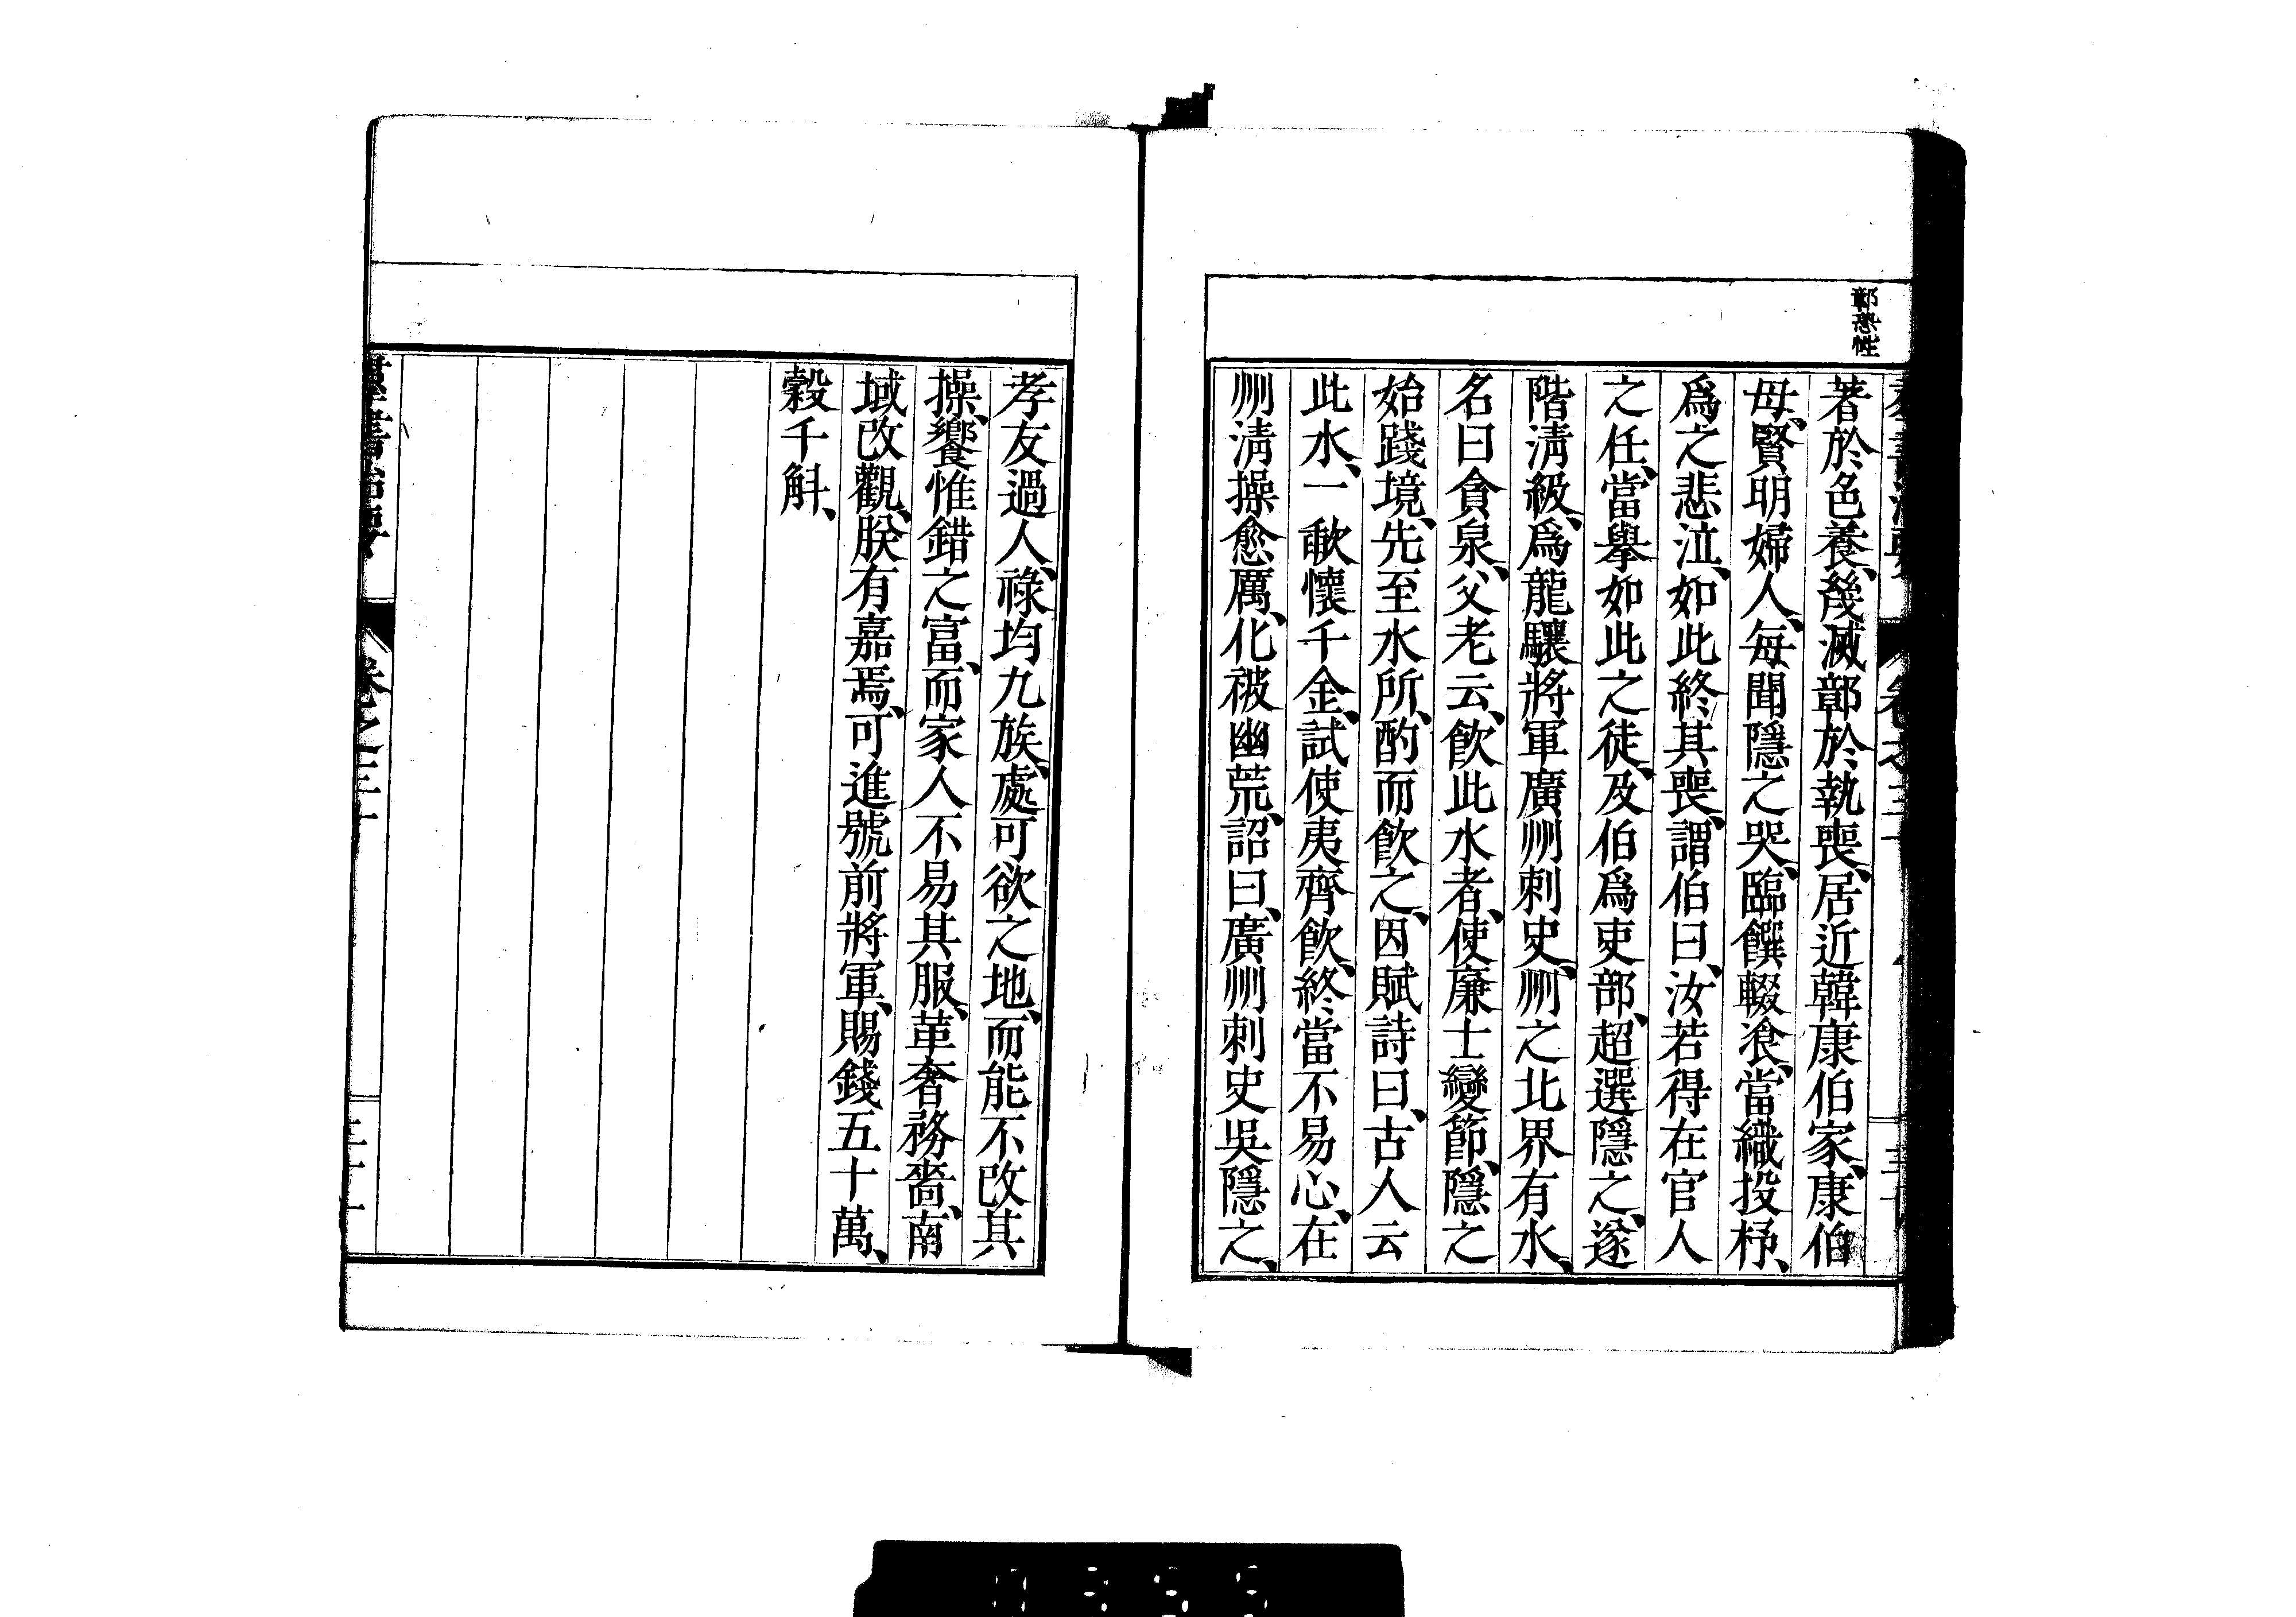 鄣恐性
著於色養、幾滅鄣於執喪、居近韓康伯家、康伯
母、賢明婦人、每聞隱之哭、臨饌輟飡、當織投杼、
爲之悲泣、如此終其喪、謂伯曰、汝若得在官人
之任、當擧如此之徒、及伯爲吏部、超選隱之、遂
階淸級、爲龍驤將軍廣州刺史、州之北界有水、
名曰貪泉、父老云、飮此水者、使廉士變節、隱之
始踐境、先至水所、酌而飮之、因賦詩曰、古人云
此水、一歃懷千金、試使夷齊飮、終當不易心、在
州淸操愈厲、化被幽荒、詔曰、廣州刺史吳隱之、
孝友過人、祿均九族、處可欲之地、而能不改其
操、饗惟錯之富、而家人不易其服、革奢務嗇、南
域改觀、朕有嘉焉、可進號前將軍、賜錢五十萬、
穀千斛、
羣書治要 卷之三十